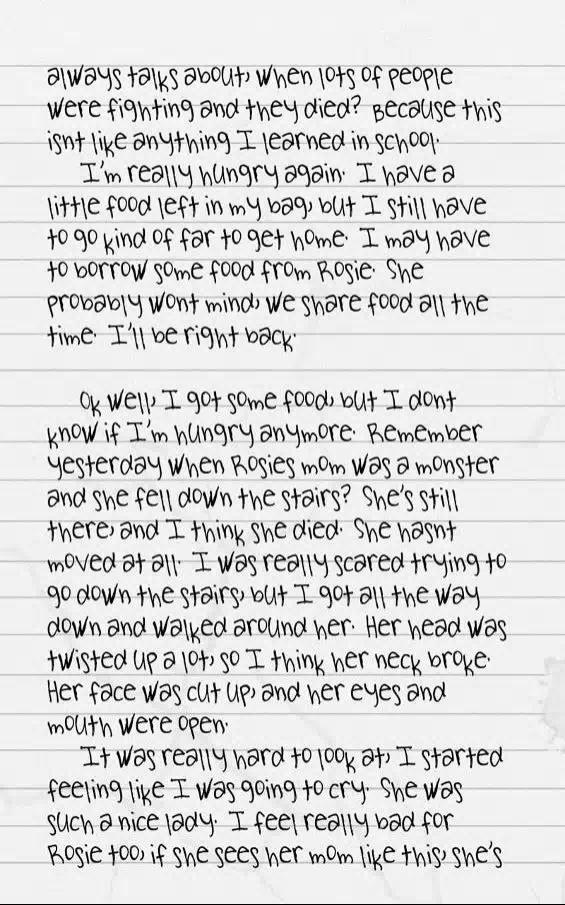 always talks about, when lots of people
were fighting and they died? Because this
isnt like anything I learned in school.
I'm really hungry again. I have a
little food left in my bag, but I still have
to go kind of far to get home. I may have
to borrow some food from Rosie. She
probably wont mind, we share food all the
time. I'll be right back.
Ok well, I got some food, but I dont
know if I'm hungry anymore. Remember
yesterday when Rosies mom was a monster
and she fell down the stairs? She's still
there, and I think she died. She hasnt
moved at all. I was really scared trying to
go down the stairs, but I got all the way
down and walked around her. Her head was
twisted up a lot, so I think her neck broke.
Her face was cut up, and her eyes and
mouth were open.
It was really hard to look at, I started
feeling like I was going to cry. She was
such a nice lady. I feel really bad for
Rosie too, if she sees her mom like this, she's